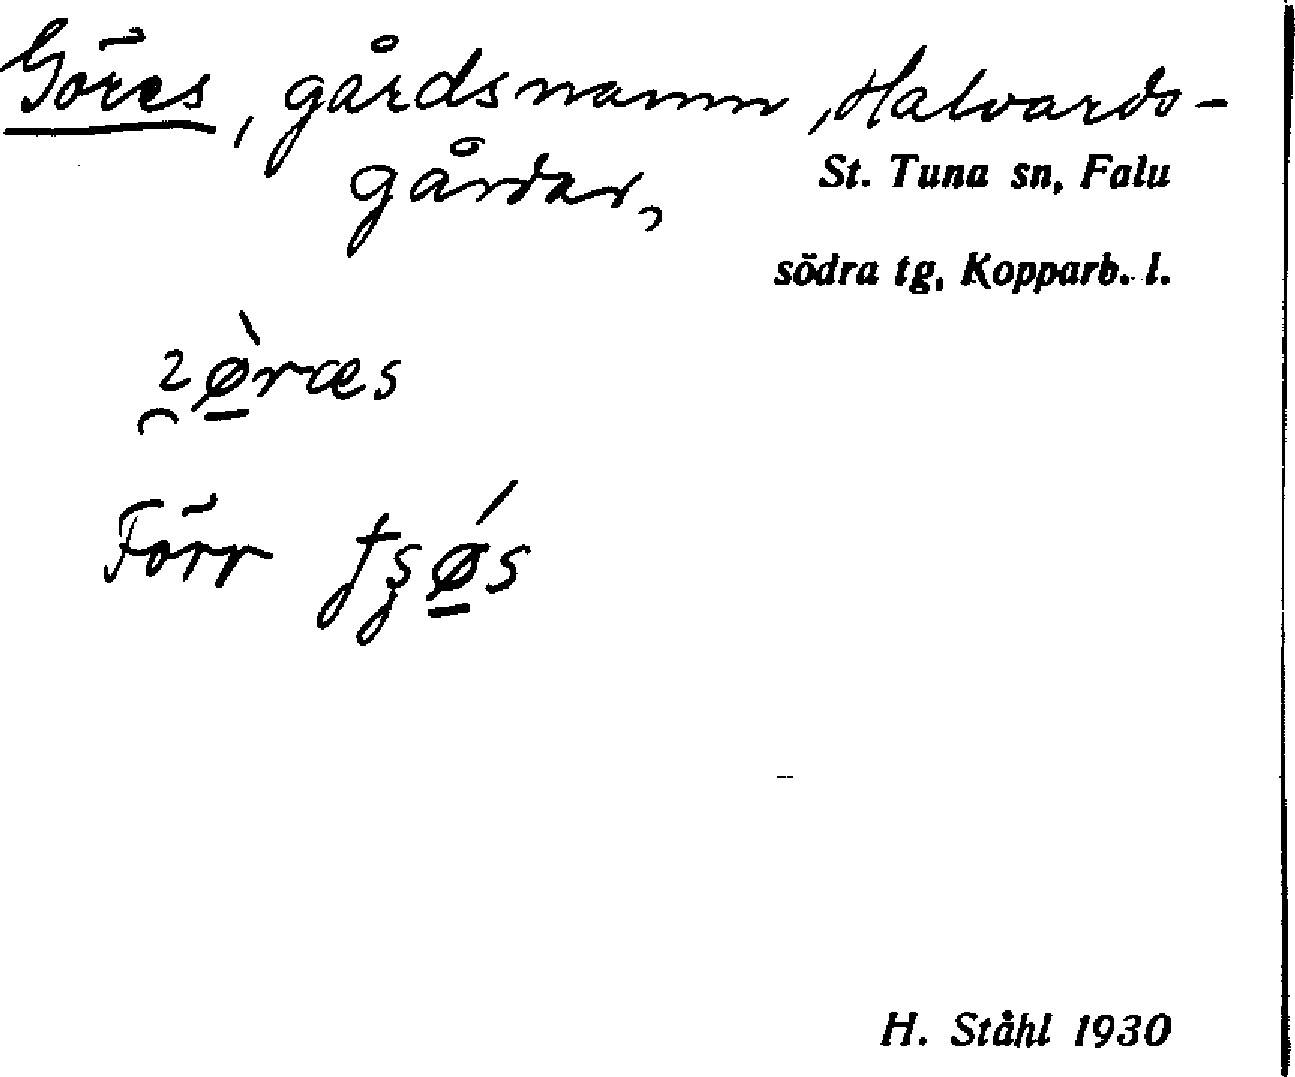 Göres, gårdsnamn, Halvards-
gårdar,
St. Tuna sn, Falu
södra tg, Kopparb. l.
Förr
H. Ståhl 1930